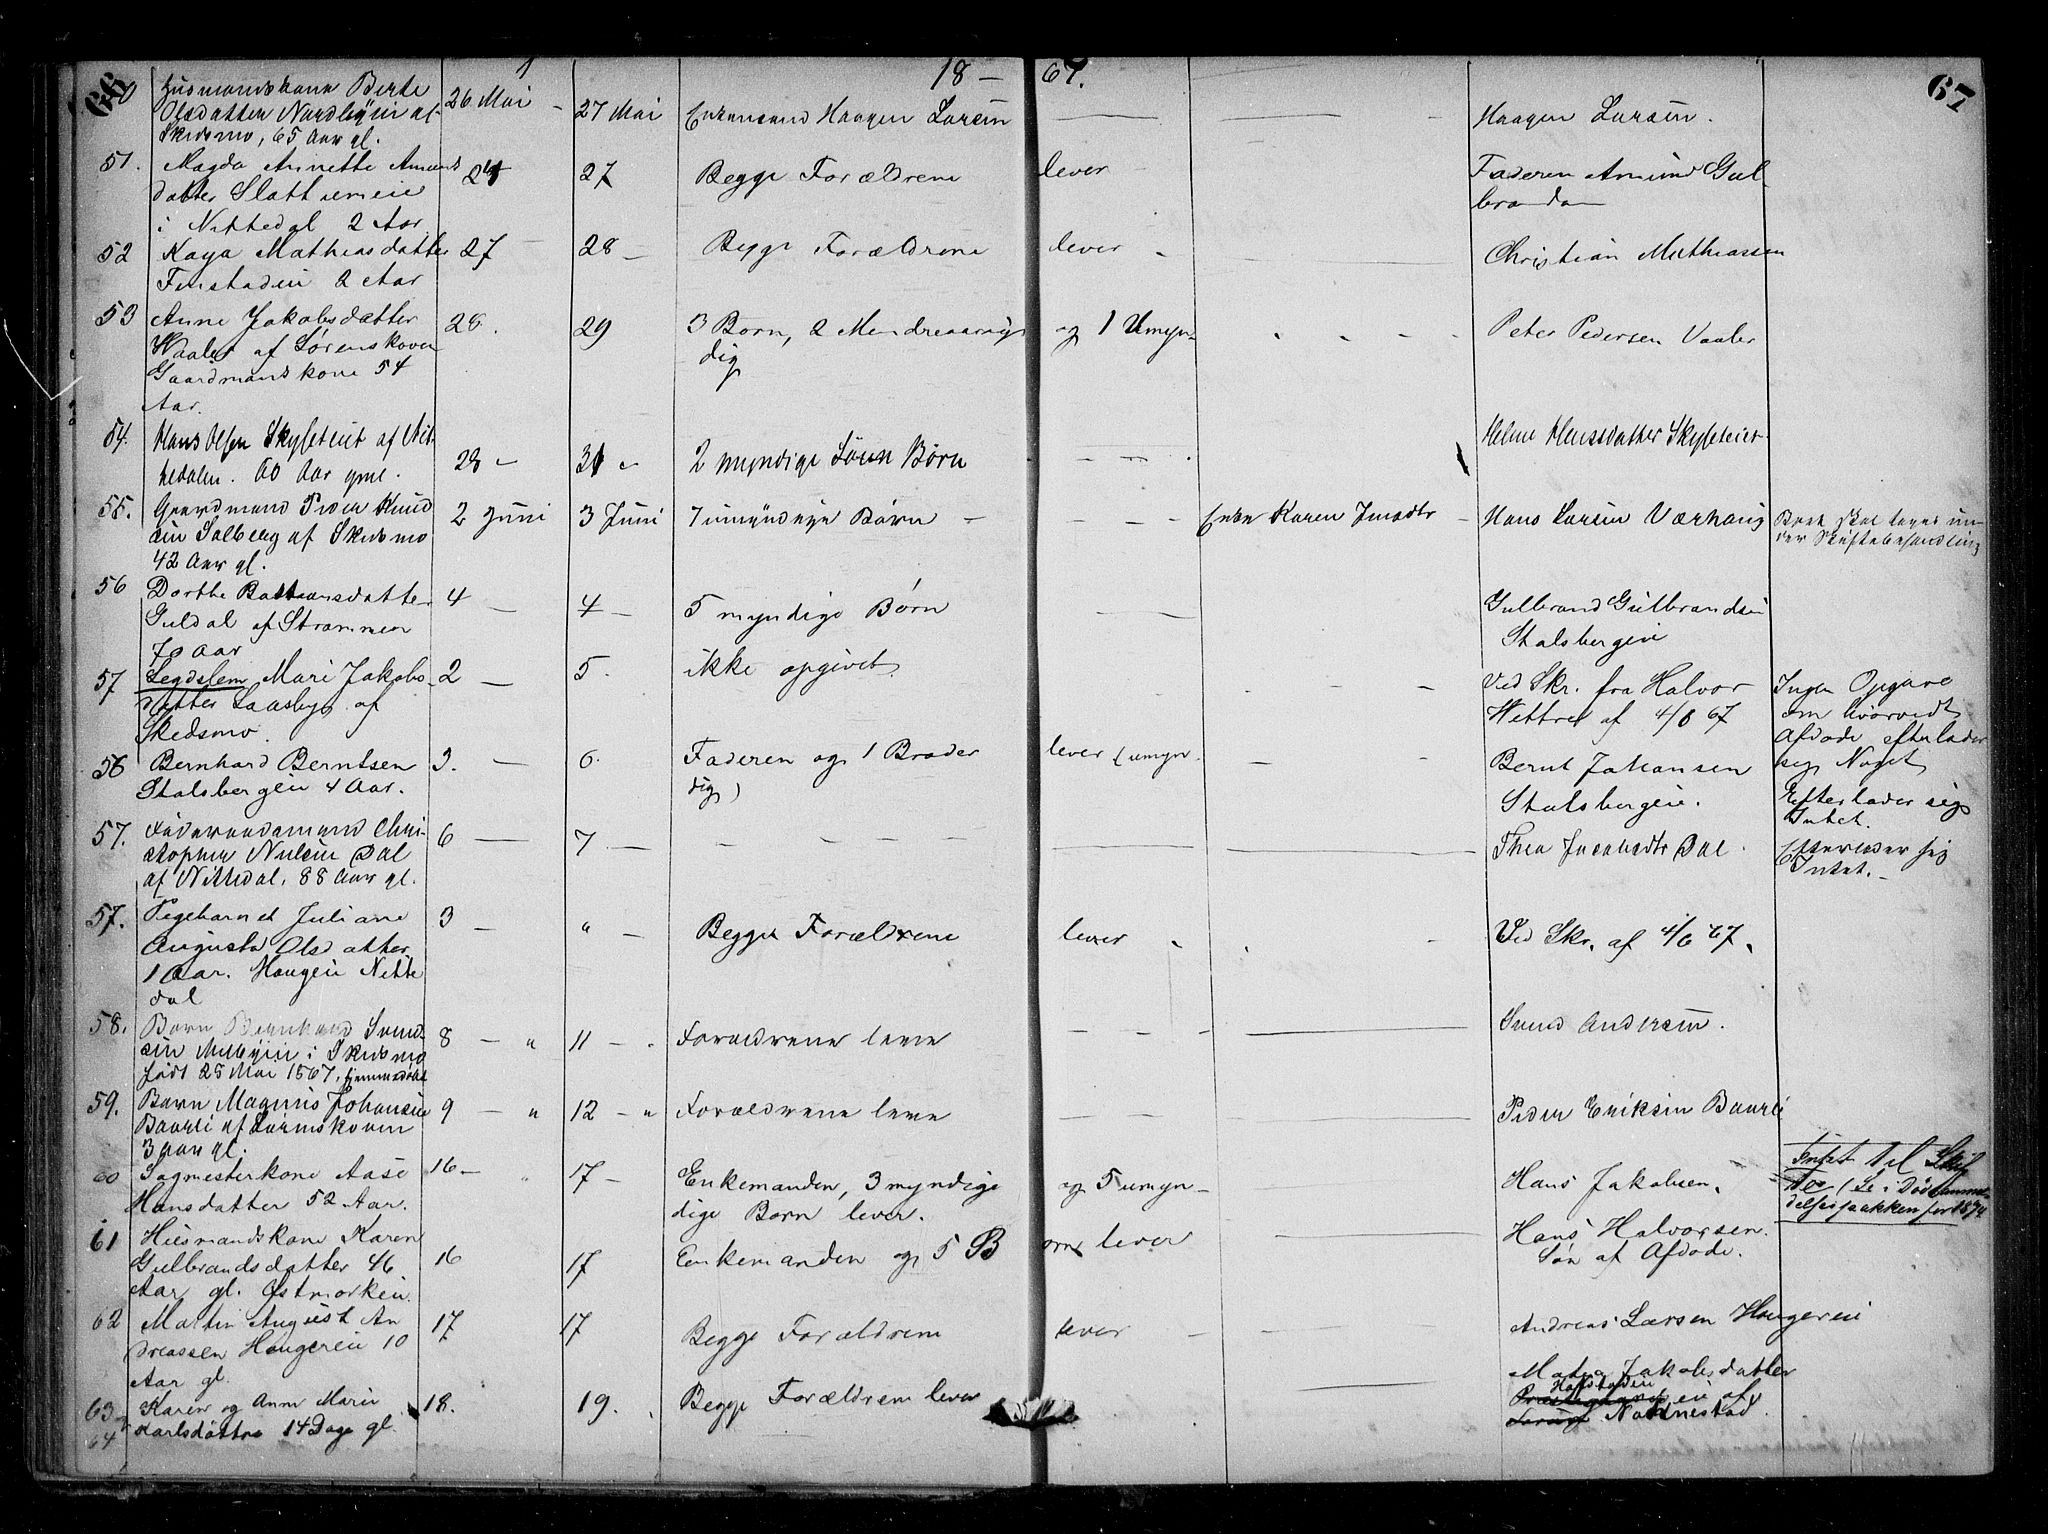 66
18 — 67.
67
Husmandskone Berte
Olsdatter Nordbyeie af
Skedsmo, 65 Aar gl.
26 Mai — 27 Mai
Enkemand Haagen Larsen
Haagen Larsen.
51. Magda Annette Amunds
datter Slattumeie
i Nittedal 2 Aar
27 Begge Forældrene lever
Faderen Amund Gul-
brands
52 Kaja Mathiasdatter
Finstadeie 2 Aar
27 28 — Begge Forældrene lever
Christian Mathiassen
53 Anne Jakobsdatter
Vaaler af Lørenskoven
Gaardmandskone 54
Aar.
28. 29 3 Børn, 2 Mindreaarige og 1 Umyn-
dig
Peter Pedersen Vaaler
54. Hans Olsen Skyseteiet af Nit-
tedalen. 60 Aar gml.
28 — 31 — 2 myndige Børn
Helene Hansdatter Skyseteiet
55. Gaardmand Peder Knud
sen Solberg af Skedsmo
42 Aar gl.
2 Juni 3 Juni 7 umyndige Børn —
Enke Karen Jensdtr — Hans Larsen Værhaug
Boet skal tages un-
der Skiftebehandling
56 Dorthe Bastiansdatter
Guldal af Strømmen
70 Aar
4 — 4 — 5 myndige Børn
Gulbrand Gulbrandsen
Stalsbergeie
57 Legdslem Mari Jakobs-
datter Laasby af
Skedsmo.
2 — 5. ikke opgivet
Ved Skr. fra Halvor
Wettre af 4/6 67
Ingen Opgave
om hvorvidt
Afdøde efterlader
sig Noget
56 Bernhard Berntsen
Stalsbergeie 4 Aar.
3. — 6. Faderen og 1 Broder lever (umyn-
dig)
Bernt Johansen
Stalsbergeie.
Efterlader sig
Intet.
57. Føderaadsmand Chri-
stopher Nielsen Dal
af Nittedal, 88 Aar gl.
6 — 7 —
Thea Jacobsdtr Dal.
Efterlader sig
Intet. —
57. Pigebarnet Juliane
Augusta Olsdatter
1 Aar. Haugen Nitte
dal
3 — " — Begge Forældrene lever
Ved Skr. af 4/6 67.
58. Barn Bernhard Svend-
sen Melbyeie i Skedsmo
født 25 Mai 1867, hjemmedøbt
8 — " 11 — " Forældrene leve
Svend Andersen.
59. Barn Magnus Johansen
Baarli af Lørenskoven
3 Aar gl.
9 — " 12 — " Forældrene leve
Peder Eriksen Baarli
60 Sagmesterkone Aase
Hansdatter 52 Aar.
16 — 17 — Enkemanden, 3 myndige og 5 umyn-
dige Børn lever.
Hans Jakobsen.
Intet til Skif
te — (Se i Dødsanmel-
delsespakken for 1874
61 Husmandskone Karen
Gulbrandsdatter 46
Aar gl. Østmorkeie.
16 17 Enkemanden og 5 Børn lever
Hans Halvorsen.
Søn af Afdøde.
62 Martin August An
dreassen Haugereie 10
Aar gl.
17 17 Begge Forældrene lever
Andreas Larsen Haugereie
63 og 64 Karen og Anne Marie
Karlsdøttre 14 Dage gl.
18. 19. Begge Forældrene lever
Jakobsdatter
eie af
Nordnestad